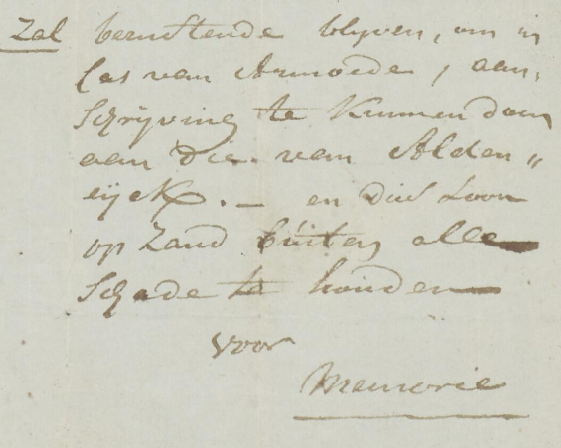 Zal berustende blyven, om in
Cas van Armoede, aan„
schrijving te kunnen doen
aan die van Alden„
eijck. — en dus Loon
op Zand buiten alle
schade te houden
voor
Memorie